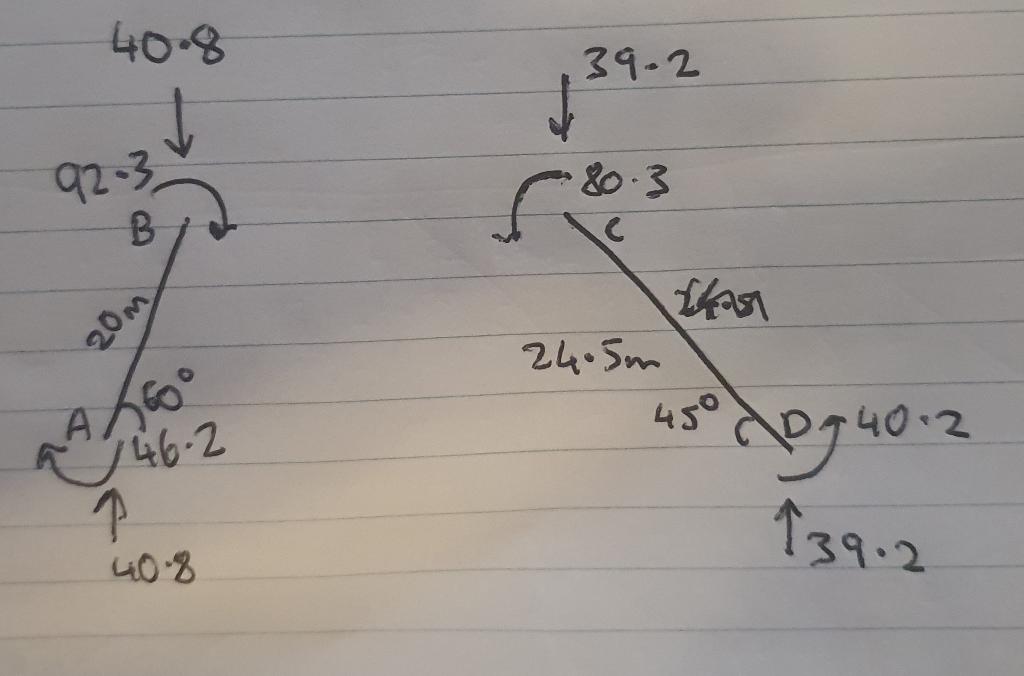 40.8
39.2
92.3
80.3
B
C
20m
24.5m
60°
45°
A
D
46.2
40.2
40.8
39.2